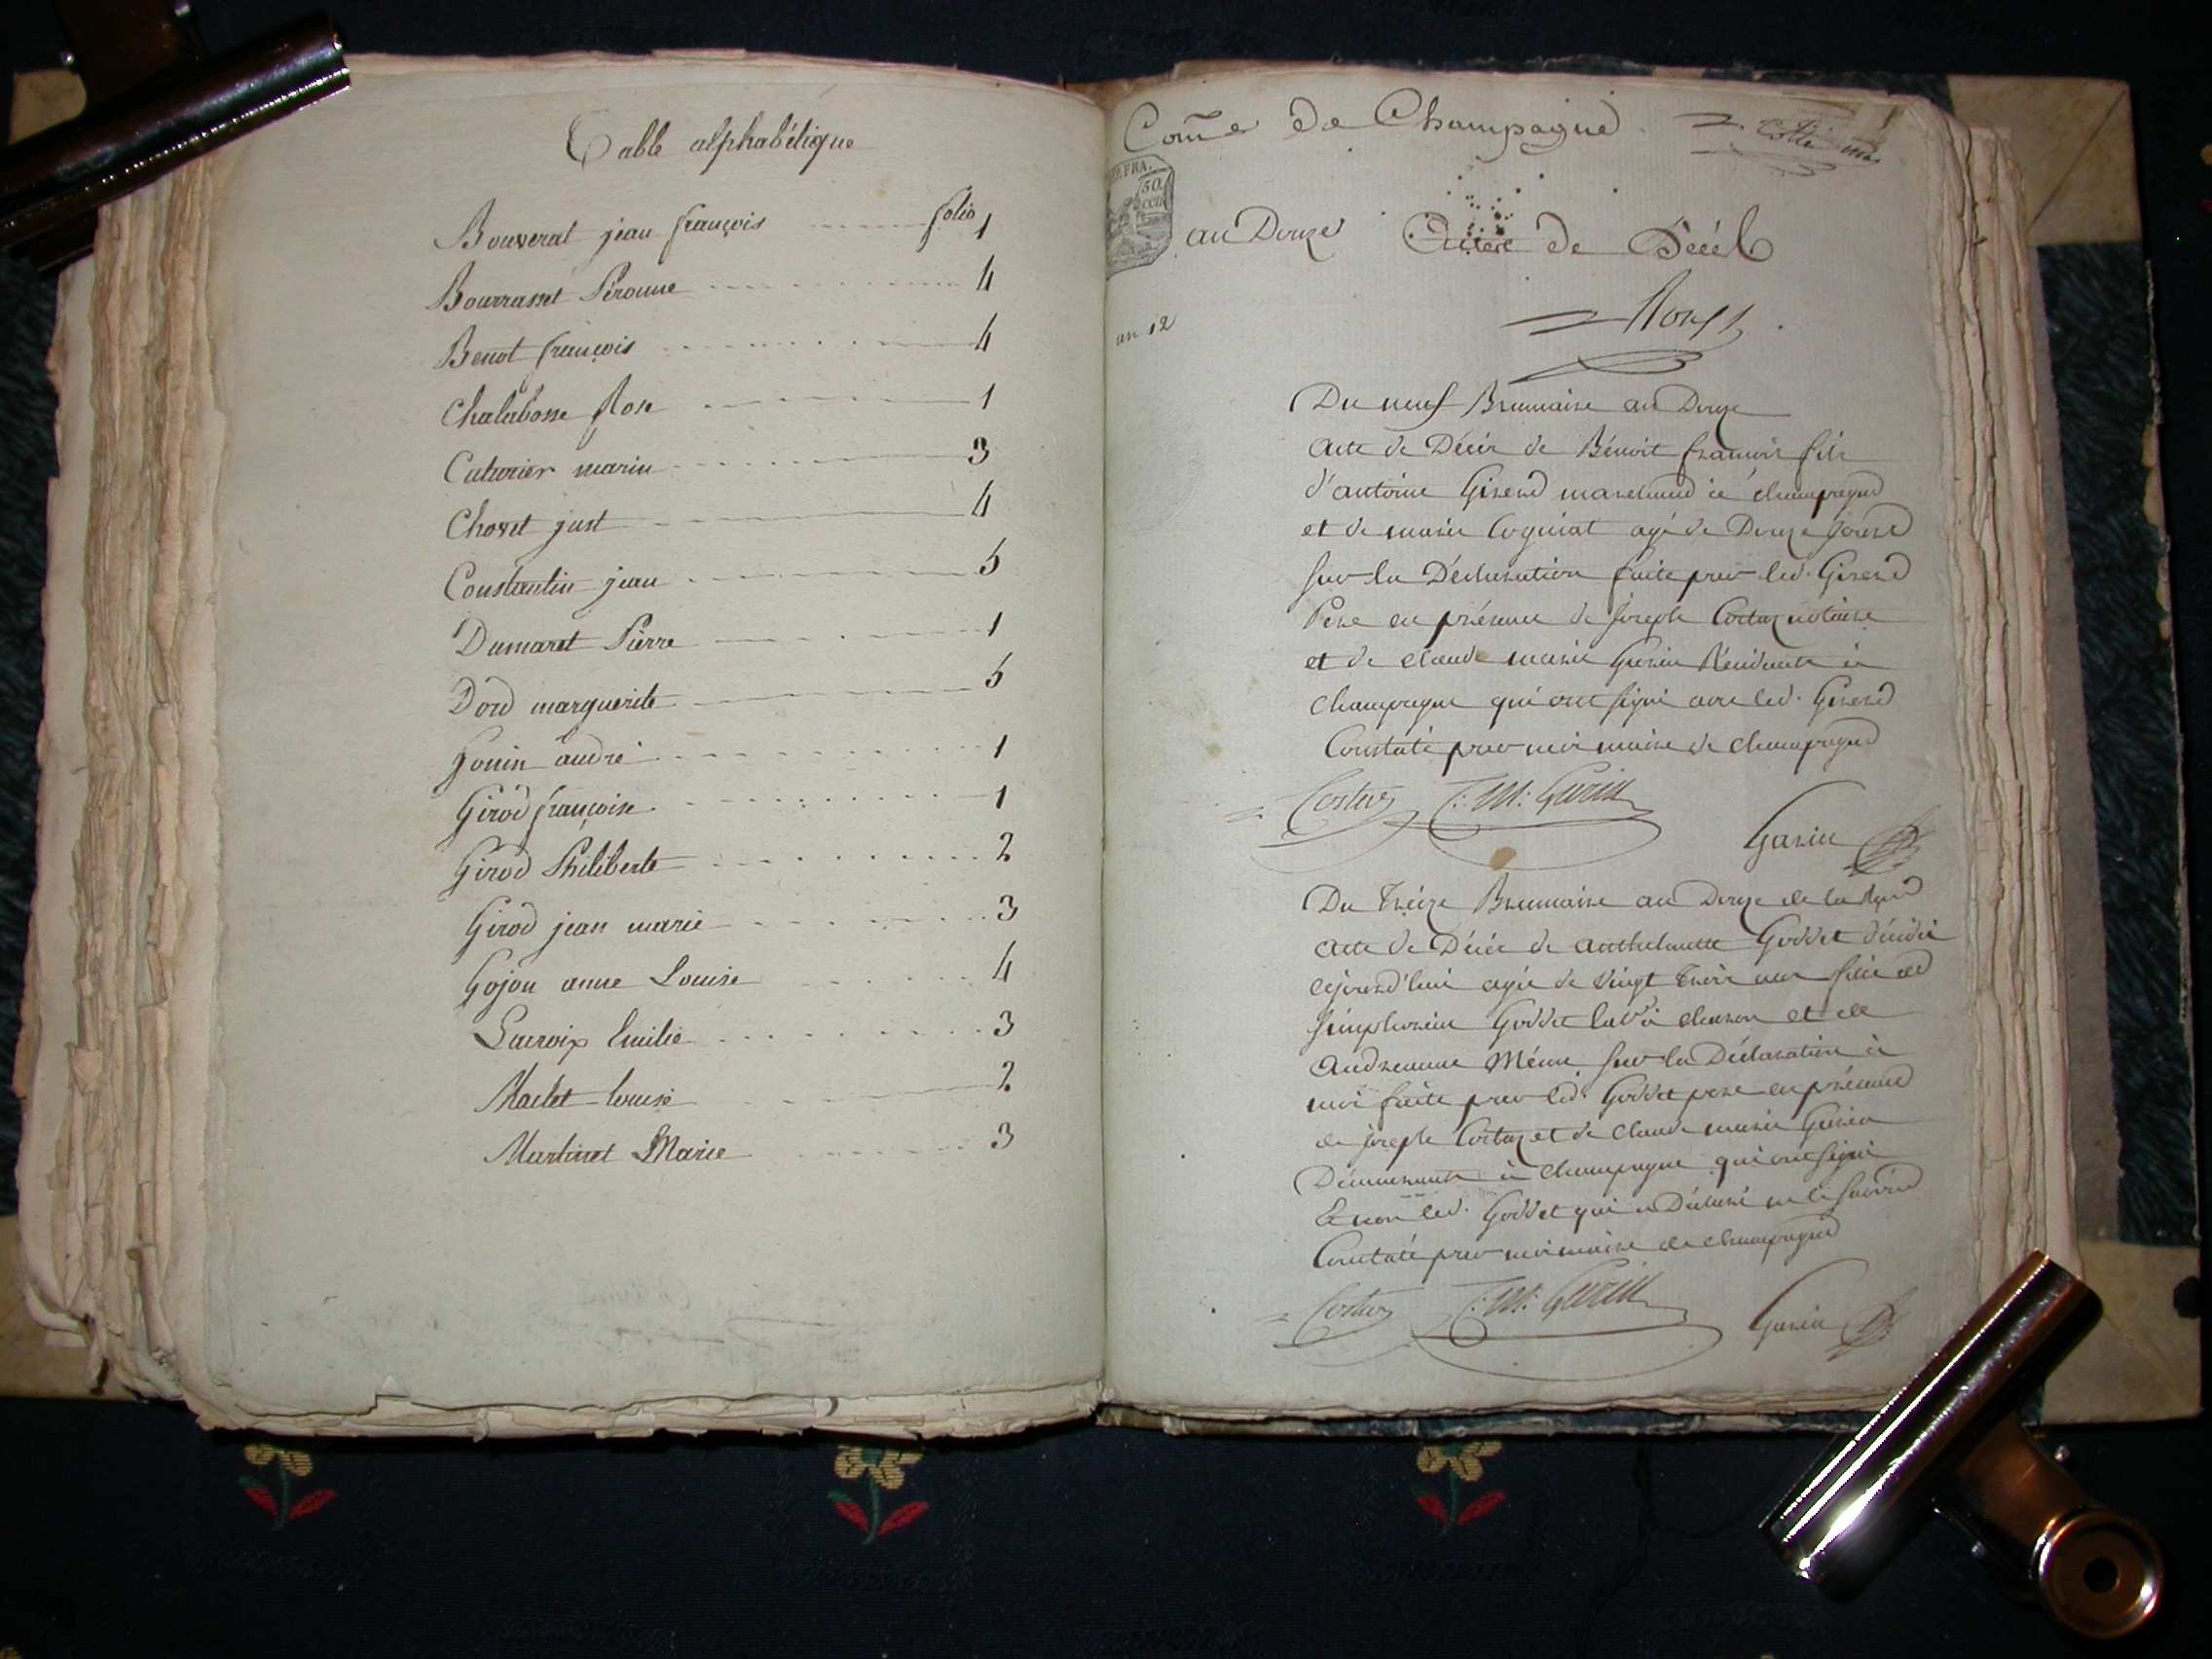 Table alphabétique
Bouverat jean françois folio 1
Bourrasset Péronne 4
Benot françois 4
Chalabosse Rose 1
Cuturier marin 3
Chovet just 4
Constantin jean 5
Dumaret Pierre 1
Dord marguerite 5
Gonin andré 1
Girod françoise 1
Girod Philiberte 2
Girod jean marie 3
Gojon anne Louise 4
Lacroix Emilie 3
Maclet louise 2
Martinet Marie 3
Come de Champagne
FRA.
50
CEN
an Douze Actes de Décès
an 12
Du neuf Brumaire an Douze
acte de Décès de Bénoit françois fils
d'antoine Girerd marechand à champagne
et de marie Coguiat agé de Douze jours
sur la Déclaration faite par led. Girerd
Pere en présence de Joseph Costaz notaire
et de claude marie Guérin Résidants à
champagne qui ont signé avec led. Girerd
Constaté par moi maire de champagne
Costaz C: M: Guérin
Garin
Du treize Brumaire an Douze de la Rep
acte de Décès de anthelmette Goddet décédée
aujourd'hui agée de vingt trois ans fille de
simphorien Goddet labr à charon et de
andréanne Même sur la Déclaration à
moi faite par led. Goddet pere en présence
de joseph Costaz et de claude marie Guérin
Demeurants à champagne qui ont signé
et non led. Goddet qui a Déclaré ne le savoir
Constaté par moi maire de champagne
Costaz C: M: Guérin
Garin